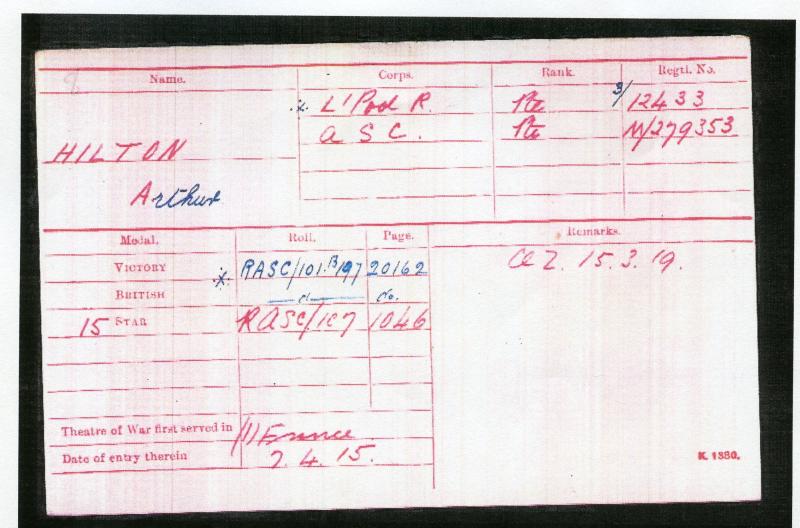 Name. Corps. Rank. Regtl. No.
x. L'Pool R. Pte 3/12433
HILTON A S C. Pte M/279353
Arthur
Medal. Roll. Page. Remarks.
VICTORY x. RASC/101.B/197 20162 Cl Z. 15.3.19.
BRITISH —d— do.
15 STAR RASC/1C7 1046
Theatre of War first served in (1) France
Date of entry therein 7.4.15.
K. 1380.